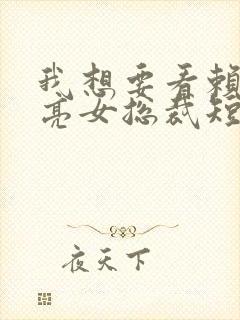 我想要看賴
亮女总裁短
夜天下